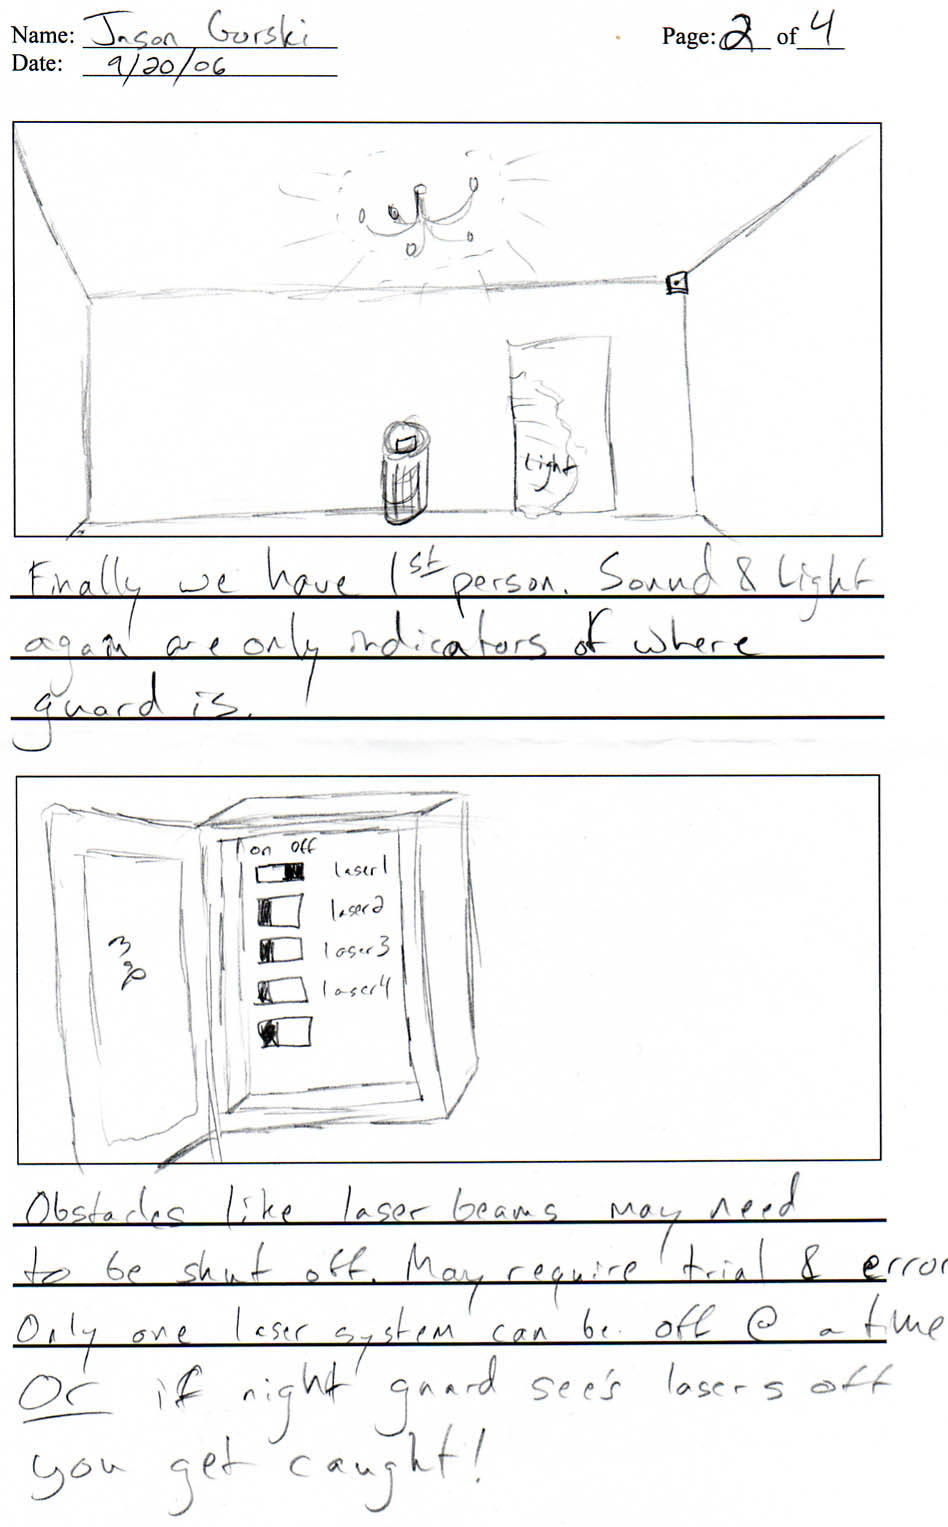 Name: Jason Gorski
Page: 2 of 4
Date: 9/20/06
Light
Finally we have 1st person. Sound & Light
again are only indicators of where
guard is.
on off
laser1
laser2
laser3
laser4
Obstacles like laser beams may need
to be shut off. May require trial & error
Only one laser system can be off @ a time
Or if night guard see's lasers off
you get caught!